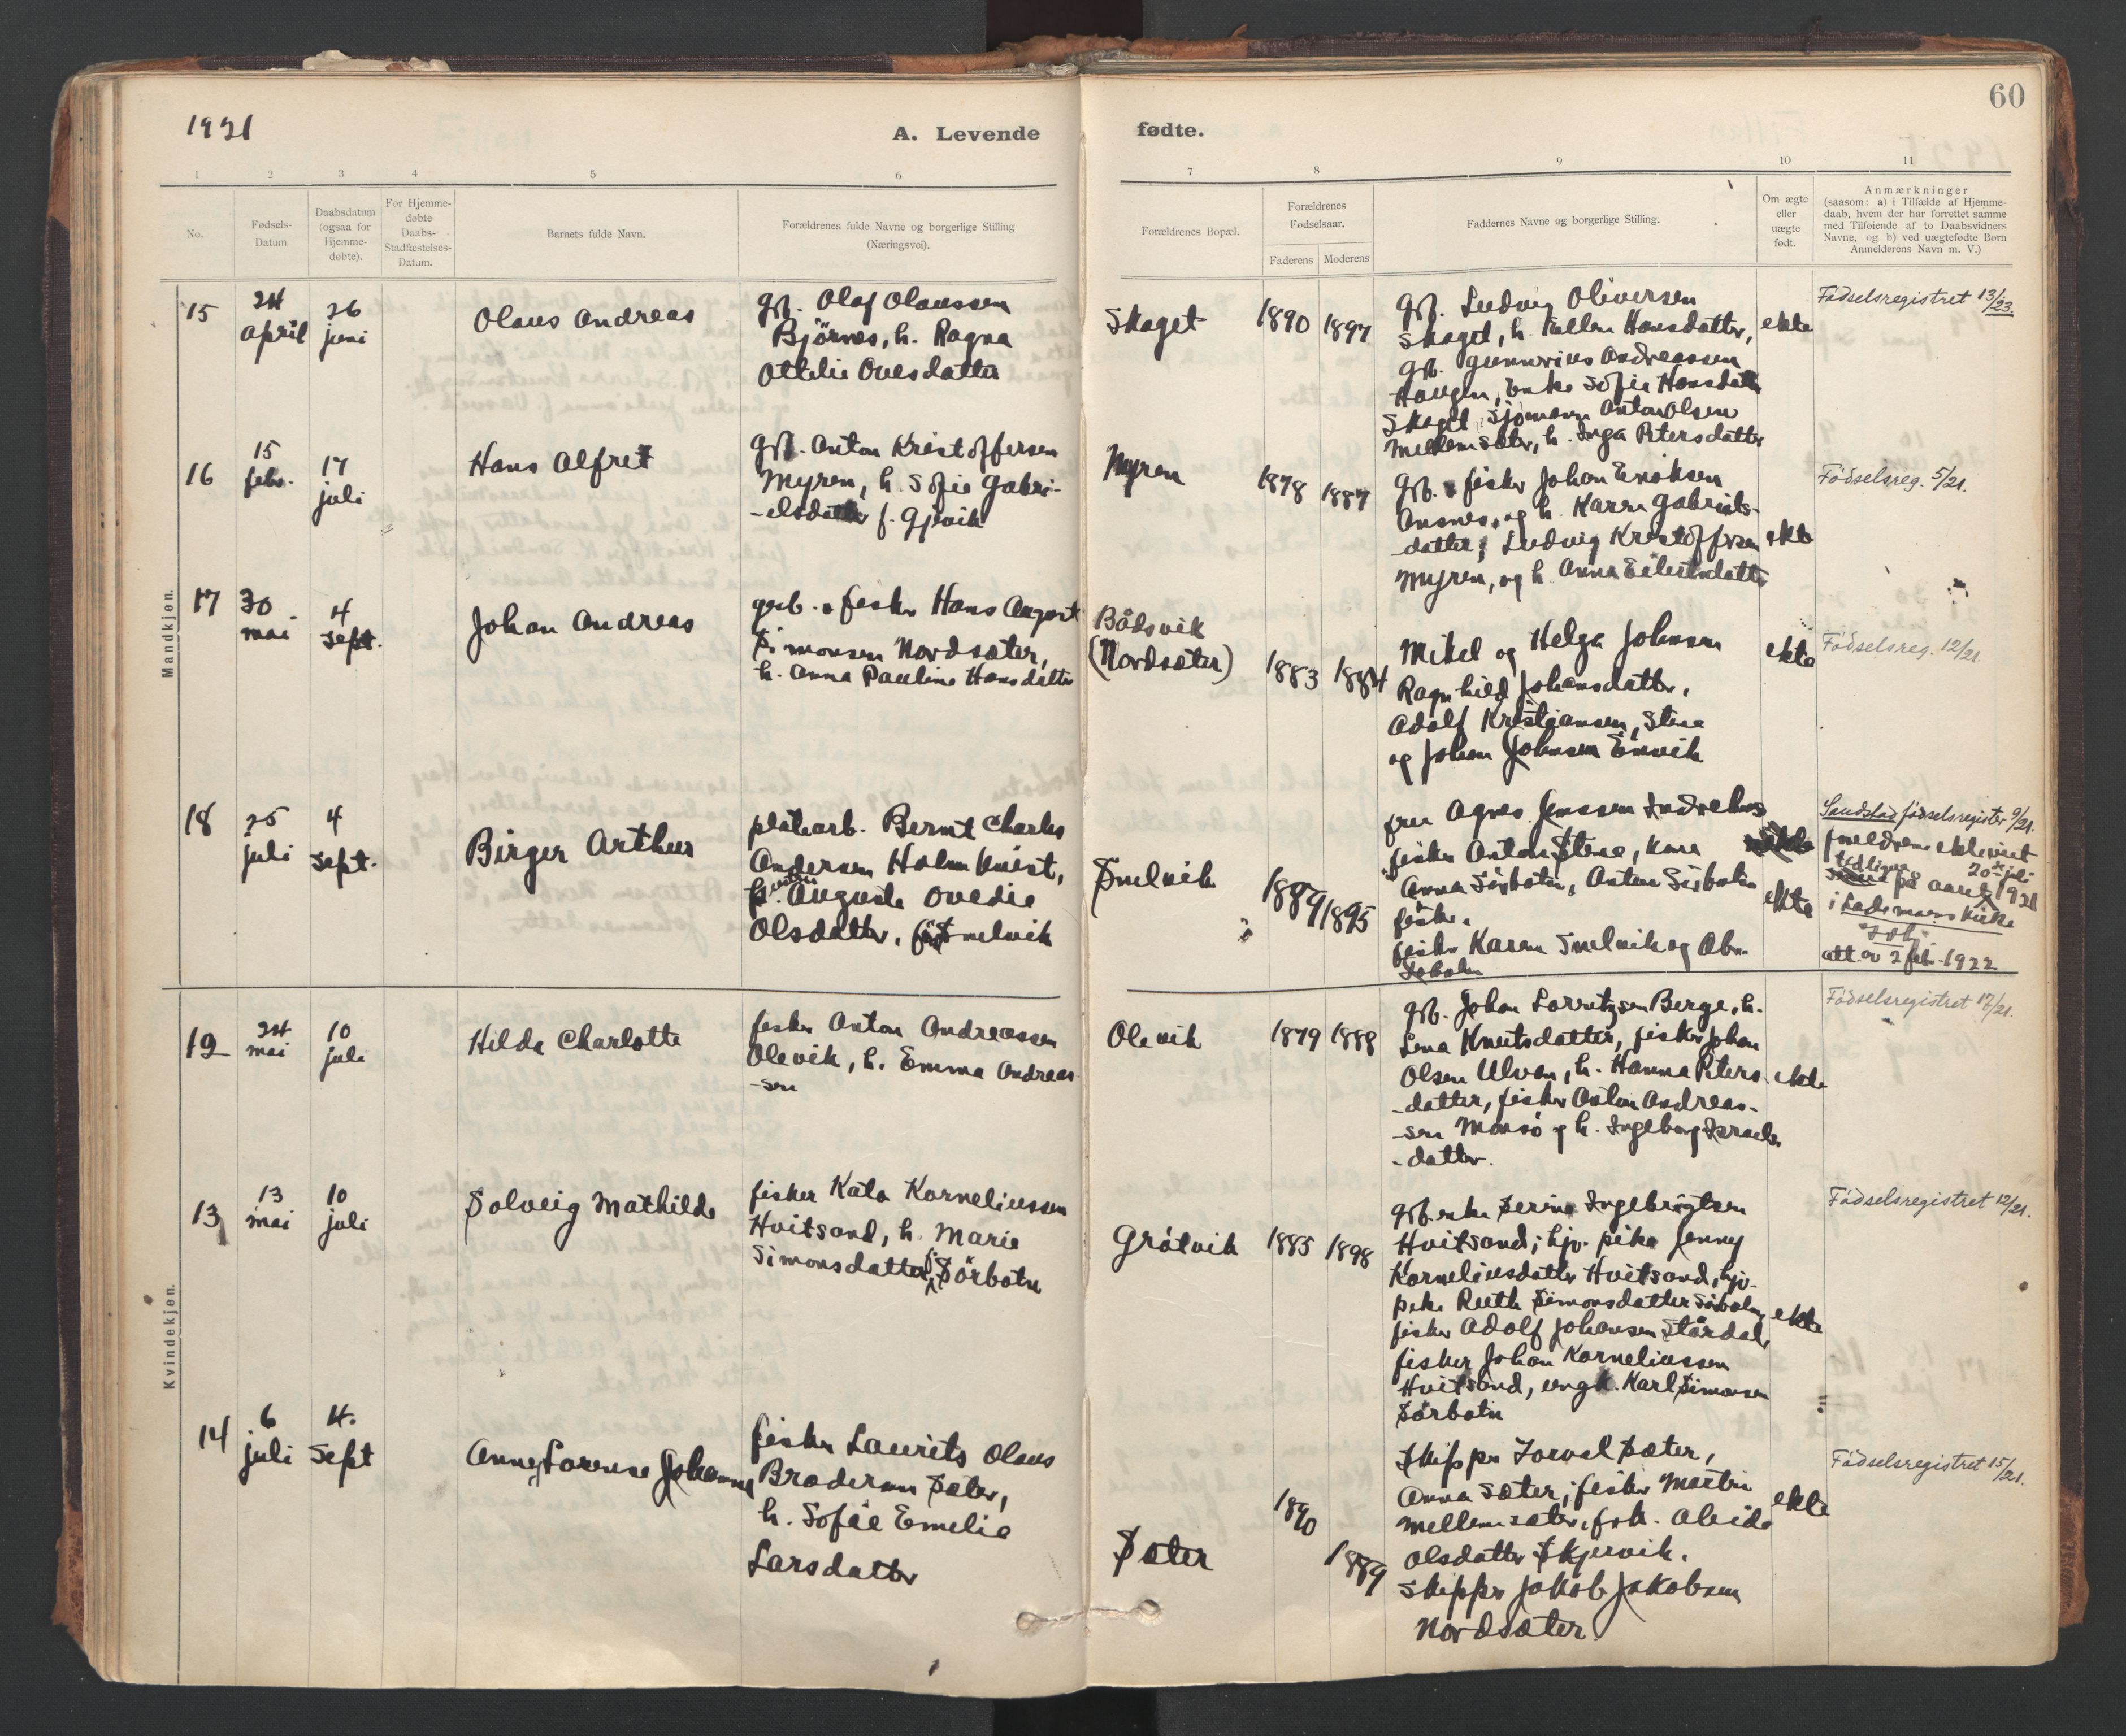 60
1921
A. Levende
fødte.
1 2 3 4 5 6
7 8 9 10 11
No.
Fødsels-
Datum
Daabsdatum
(ogsaa for
Hjemme-
døbte).
For Hjemme-
døbte
Daabs-
Stadfæstelses-
Datum.
Barnets fulde Navn.
Forældrenes fulde Navne og borgerlige Stilling
(Næringsvei).
Forældrenes Bopæl.
Forældrenes
Fødselsaar.
Faderens Moderens
Faddernes Navne og borgerlige Stilling.
Om ægte
eller
uægte
født.
Anmærkninger
(saasom: a) i Tilfælde af Hjemme-
daab, hvem der har forrettet samme
med Tilføiende af to Daabsvidners
Navne, og b) ved uægtefødte Børn
Anmelderens Navn m. V.)
Mandkjøn.
15
24
april
26
juni
Olaus Andreas
gb. Olaf Olaussen
Björnes, h. Ragna
Ottilie Ovesdatter
Skaget
1890 1897
gb. Ludvig Oliversen
Skaget, h. Hansdatter,
gb. Gunnerius Andreassen
Haugen, enke Sofie Hansdatter
Skaget, sjömann Anton Olsen
Mellemsæter, h. Inga Petersdatter
ekte
Fødselsregistret 13/23.
16
15
febr.
17
juli
Hans Alfret
gb. Anton Kristoffersen
Myren, h. Sofie Gabri-
-elsdatter f. Gjevik
Myren
1878 1887
gb. fisker Johan Enoksen
Ansnes, og h. Karen Gabriels-
-datter; Ludvig Kristoffersen
Myren, og h. Anna Eilertsdatter
ekte
Fødselsreg. 5/21.
17
30
mai
4
sept.
Johan Andreas
fisker Hans August
Simonsen Nordsæter,
h. Anna Pauline Hansdatter
Bådsvik
(Nordsæter)
1883 1884
Mikel og Helga Johnsen
Ragnhild Johansdatter,
Adolf Kristiansen, Stene
og Johan Johnsen Envik
ekte
Fødselsreg. 12/21.
18
25
juli
4
sept.
Birger Arthur
platearb. Bernt Charles
Andersen Holmkvist,
Auguste Ovedie
Olsdatter, Snelvik
Snelvik
1889 1895
fru Agnes Jenssen
fisker Anton Stene,
Anna Sörbotn, Anton Sörbotn
fisker
fisker Karen Snelvik og
ekte
Sandstad fødselsregister 9/21.
foreldrene ekteviet
20de juli
på aaret 1921
i Lademoens kirke
att. av 2 feb. 1922
Kvindekjøn.
12
24
mai
10
juli
Hilda Charlotte
fisker Anton Andreassen
Olevik, h. Emma Andreas
-sen
Olevik
1879 1888
gb. Johan Lorritzsen Berge, h.
Lena Knutsdatter, fisker Johan
Olsen Ulvan, h. Hanna Peters
-datter, fisker Anton Andreas-
-sen og h. Ingeborg
-datter.
ekte
Fødselsregistret 17/21.
13
13
mai
10
juli
Solveig Mathilde
fisker Kato Korneliussen
Hvitsand, h. Marie
Simonsdatter f. Sörbotn
Grötvik
1885 1898
gb. enke Serine Ingebrigtsen
Hvitsand; hjv. pike Jenny
Korneliusdatter Hvitsand, hjv.
pike Ruth Simonsdatter Sörbotn,
fisker Adolf Johansen Stördal,
fisker Johan Korneliussen
Hvitsand, ungk. Karl Simonsen
Sörbotn
ekte
Fødselsregistret 12/21.
14
6
juli
4.
sept
Anne Lorense Johanna
fisker Laurits Olaus
Brodersen Sæter,
h. Sofie Emelie
Larsdatter
Sæter
1890
1889
Skipper Torval Sæter,
Anna Sæter; fisker Martin
Mellemsæter, Alida
Olsdatter Skjervik.
Skipper Jakob Jakobsen
Nordsæter.
ekte
Fødselsregistret 15/21.